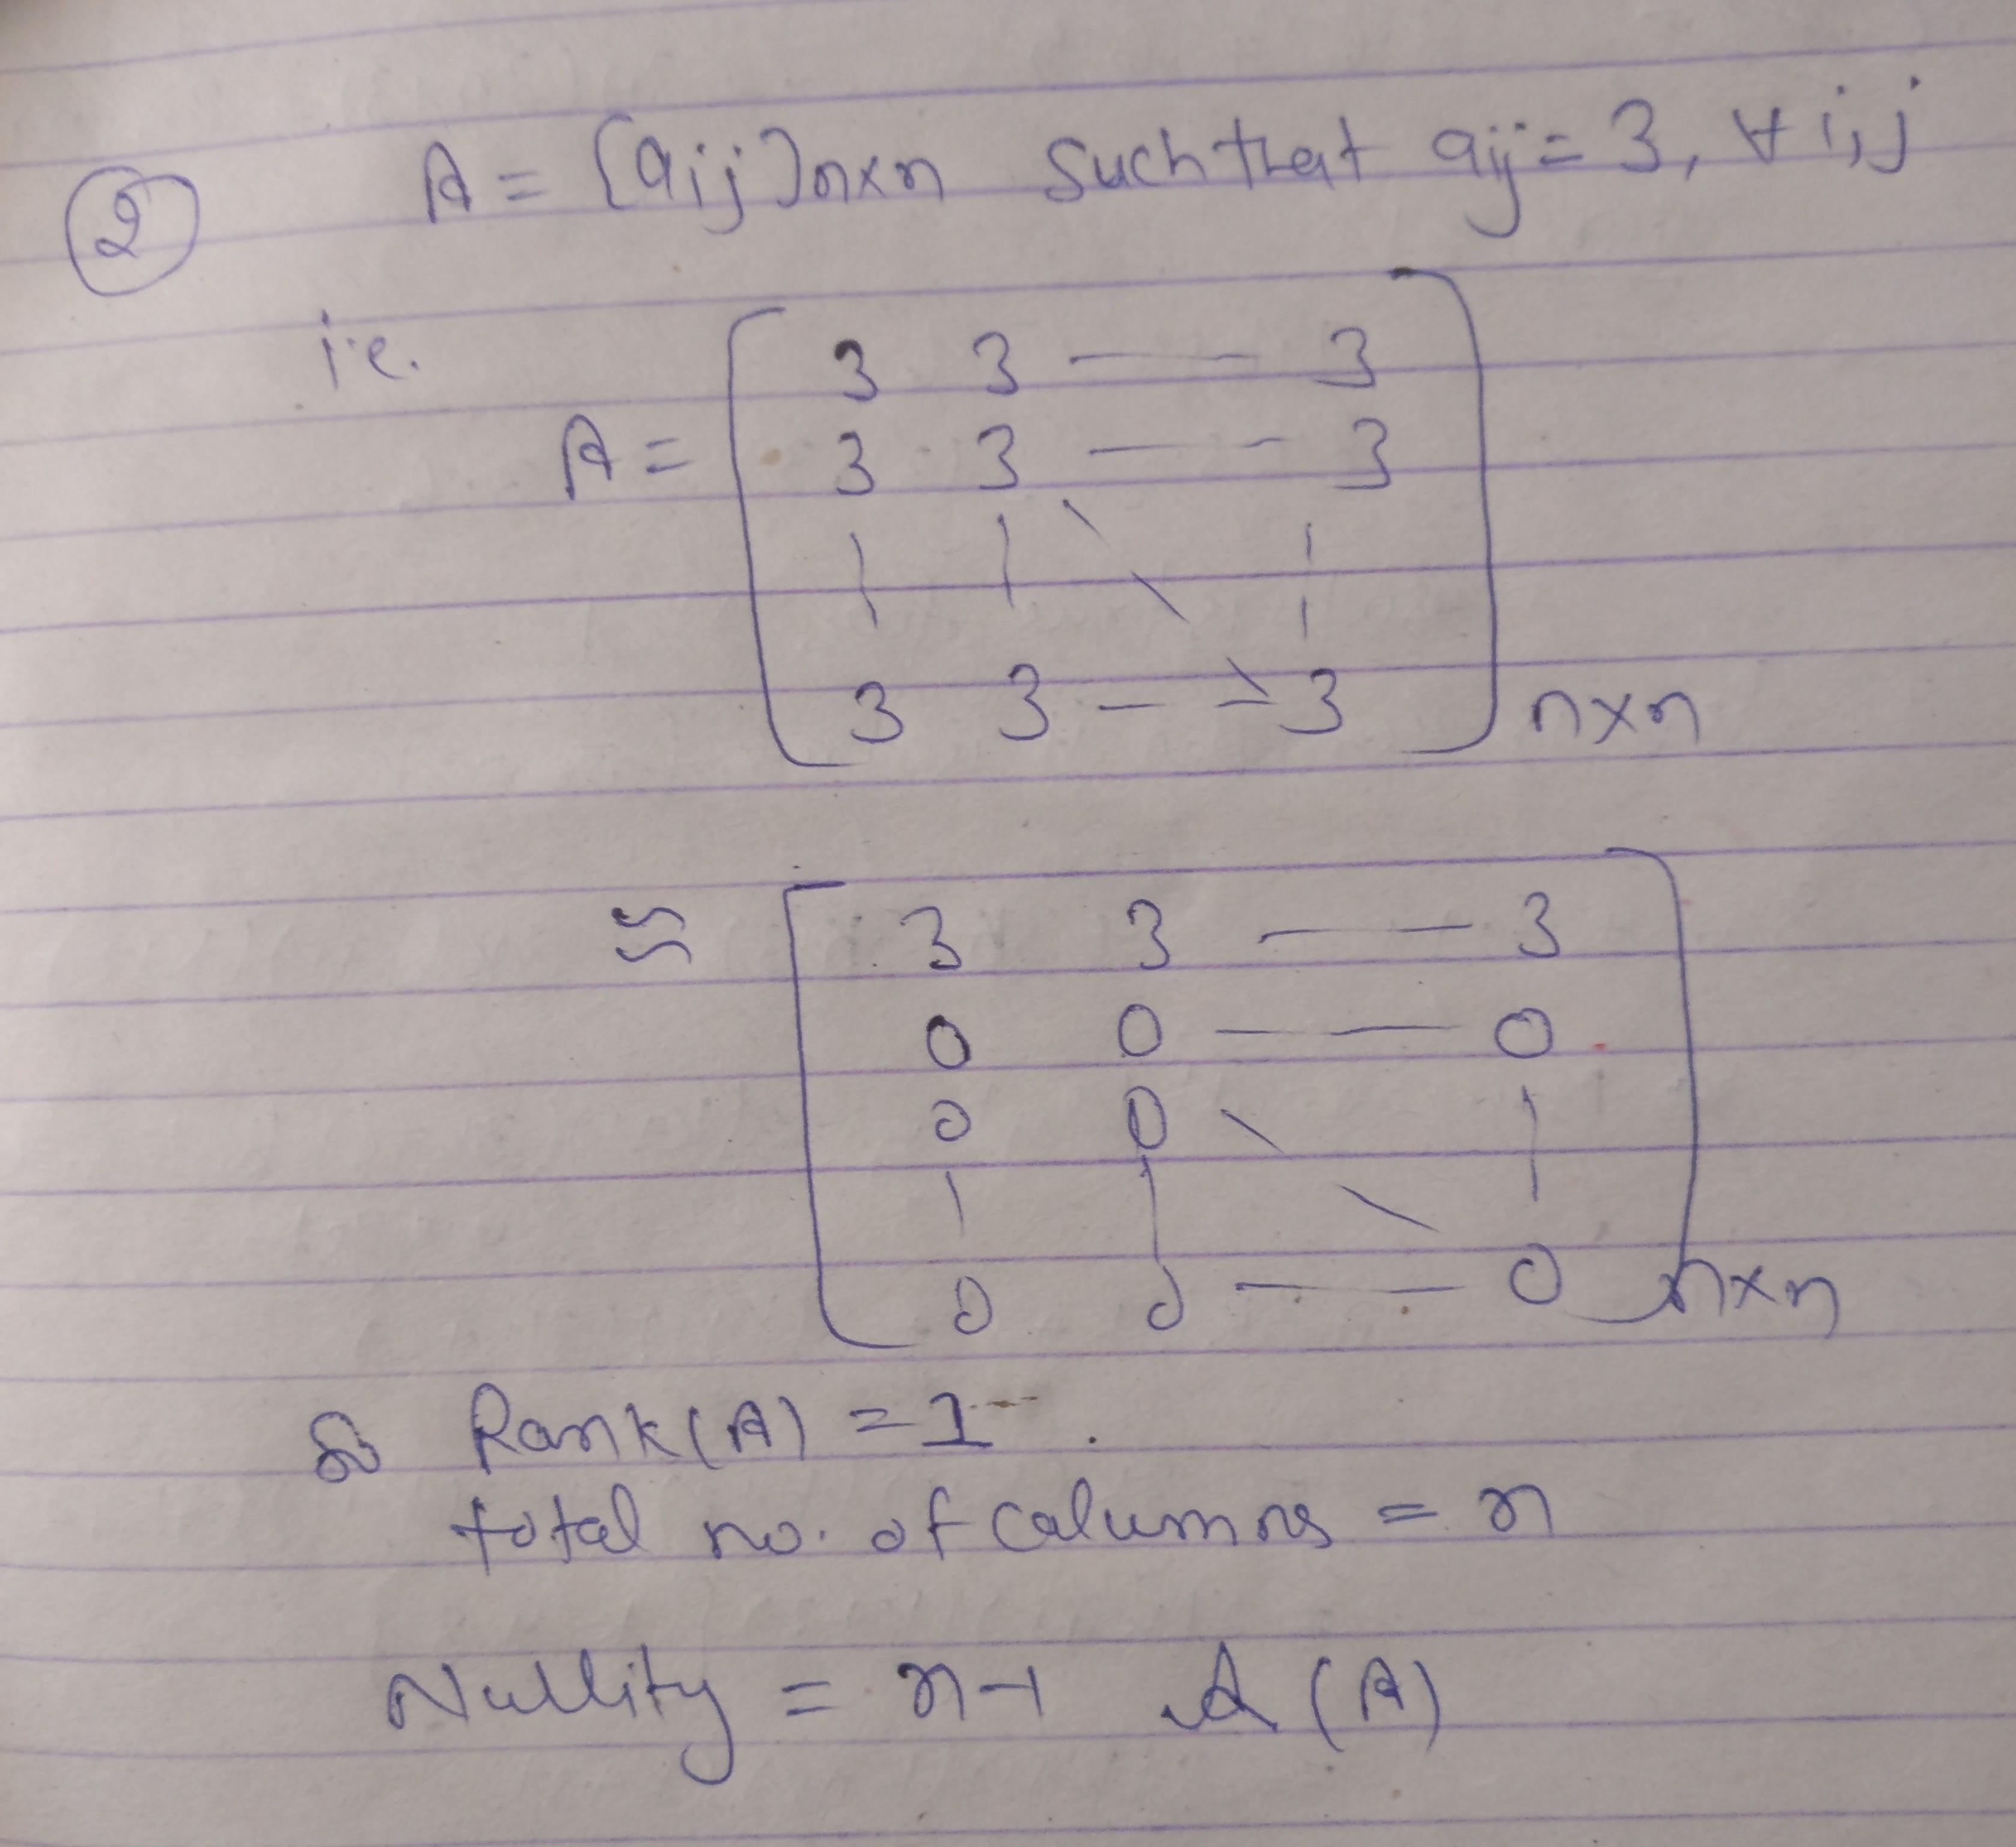 ② A = [aij]n×n such that aij = 3, ∀ i,j
i.e.
3 3 — — 3
A = 3 3 — — 3
3 3 — — 3 n×n
≈ 3 3 — — 3
0 0 — — 0
0 0
0 0 — — 0 n×n
So Rank(A) = 1.
total no. of columns = n
Nullity = n-1 (A)